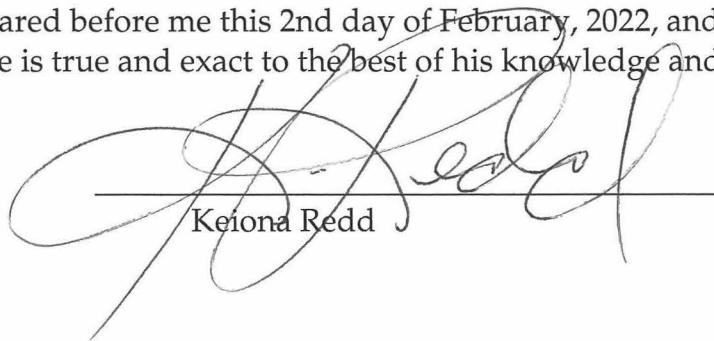 ared before me this 2nd day of February, 2022, and
e is true and exact to the best of his knowledge and
K. Redd
Keiona Redd